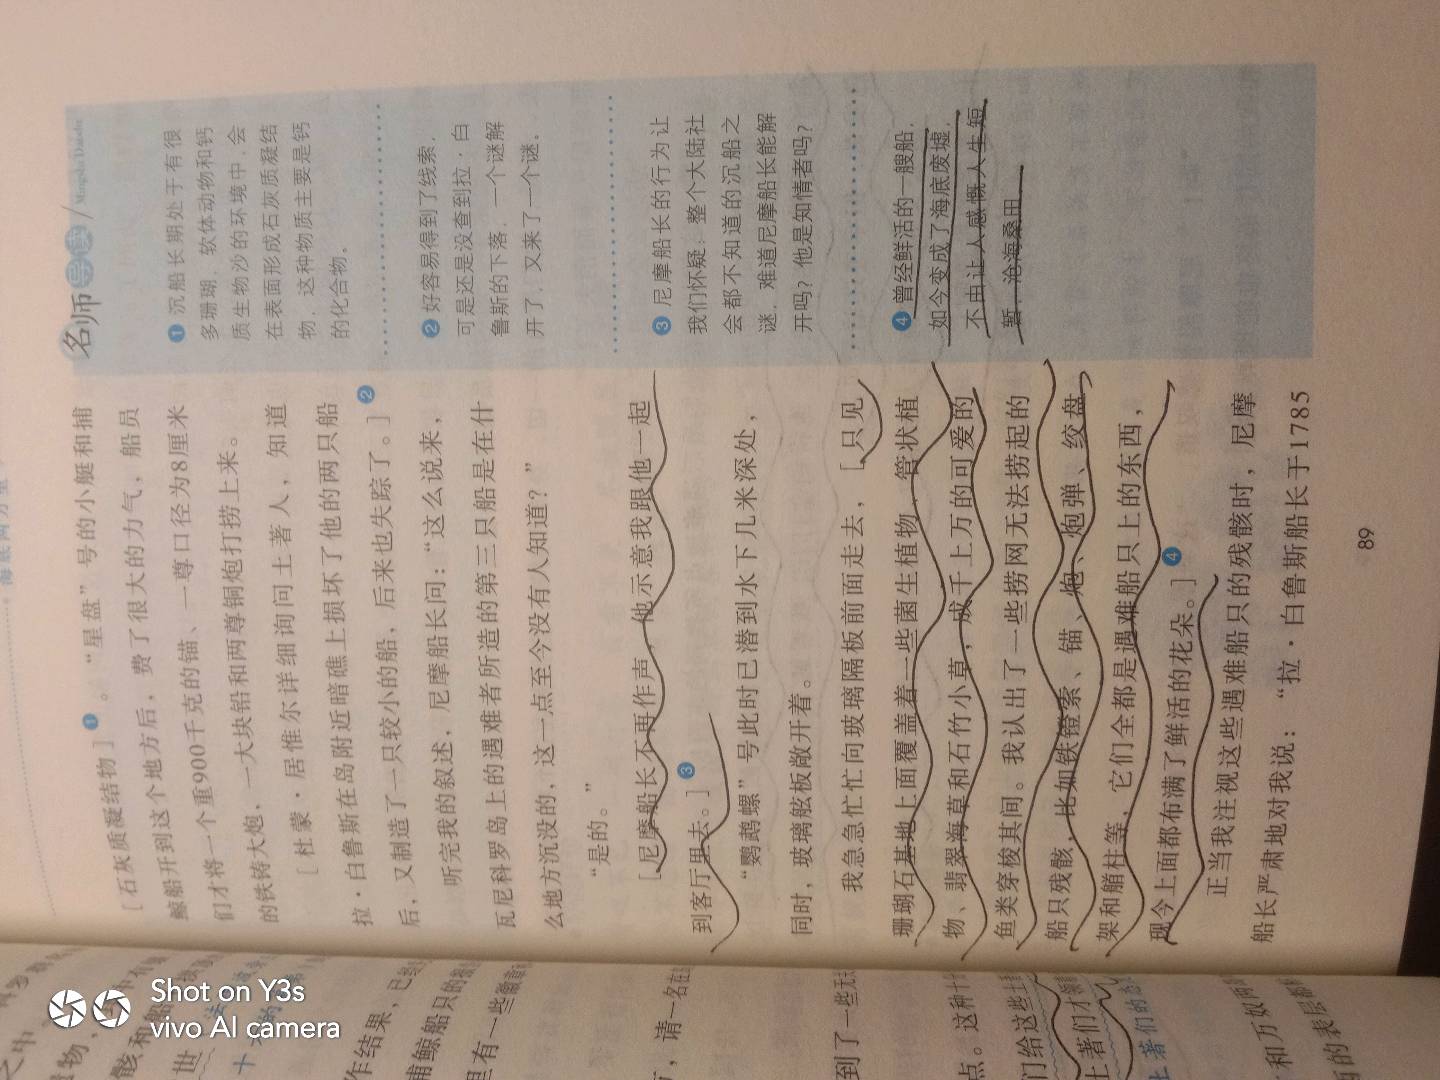 海底两万里
名师导读 / Mingshi Daodu
[石灰质凝结物]①。“星盘”号的小艇和捕
鲸船开到这个地方后，费了很大的力气，船员
们才将一个重900千克的锚、一尊口径为8厘米
的铁铸大炮、一大块铅和两尊铜炮打捞上来。
[杜蒙·居惟尔详细询问土著人，知道
拉·白鲁斯在岛附近暗礁上损坏了他的两只船
后，又制造了一只较小的船，后来也失踪了。]②
听完我的叙述，尼摩船长问：“这么说来，
瓦尼科罗岛上的遇难者所造的第三只船是在什
么地方沉没的，这一点至今没有人知道？”
“是的。”
[尼摩船长不再作声，他示意我跟他一起
到客厅里去。]③
“鹦鹉螺”号此时已潜到水下几米深处，
同时，玻璃舷板敞开着。
我急急忙忙向玻璃隔板前面走去，[只见
珊瑚石基地上面覆盖着一些菌生植物、管状植
物、翡翠海草和石竹小草，成千上万的可爱的
鱼类穿梭其间。我认出了一些捞网无法捞起的
船只残骸，比如铁镫索、锚、炮、炮弹、绞盘
架和艏柱等，它们全都是遇难船只上的东西，
现今上面都布满了鲜活的花朵。]④
正当我注视这些遇难船只的残骸时，尼摩
船长严肃地对我说：“拉·白鲁斯船长于1785
① 沉船长期处于有很
多珊瑚、软体动物和钙
质生物沙的环境中，会
在表面形成石灰质凝结
物，这种物质主要是钙
的化合物。
② 好容易得到了线索，
可是还是没查到拉·白
鲁斯的下落，一个谜解
开了，又来了一个谜。
③ 尼摩船长的行为让
我们怀疑：整个大陆社
会都不知道的沉船之
谜，难道尼摩船长能解
开吗？他是知情者吗？
④ 曾经鲜活的一艘船，
如今变成了海底废墟，
不由让人感慨人生短
暂，沧海桑田。
89
Shot on Y3s
vivo AI camera